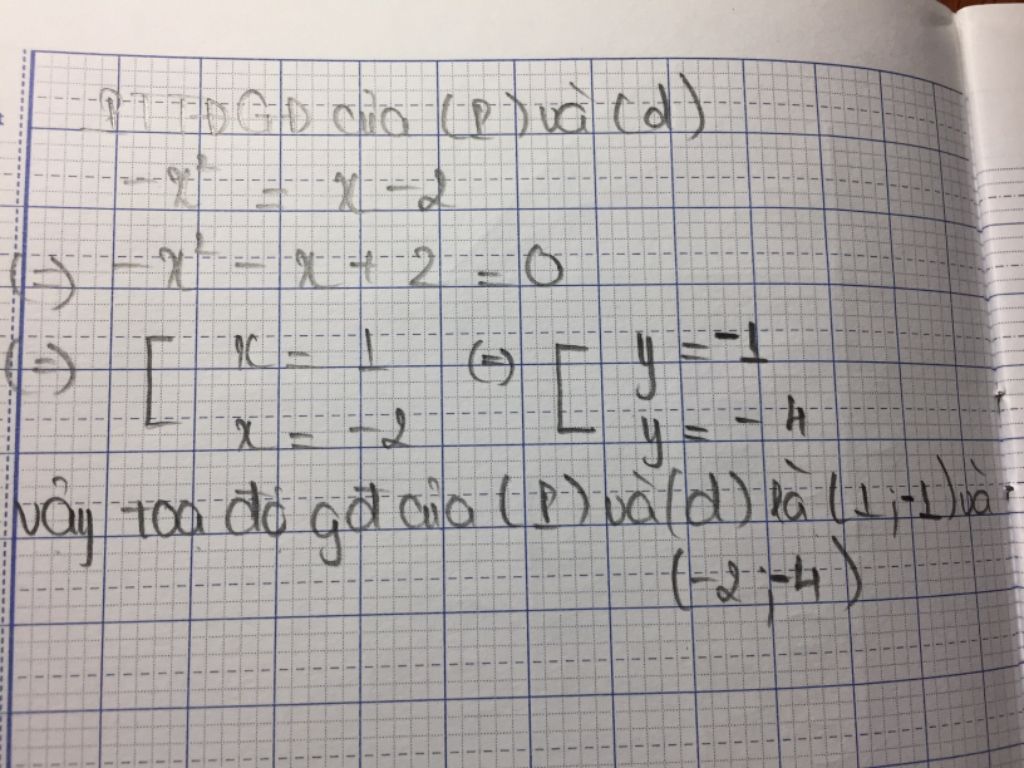 PTTĐGĐ của (P) và (d)
-x² = x - 2
(=) -x² - x + 2 = 0
(=) [ x = 1 (=) [ y = -1
x = -2 y = -4
vậy toạ độ gđ của (P) và (d) là (1;-1) và
(-2;-4)